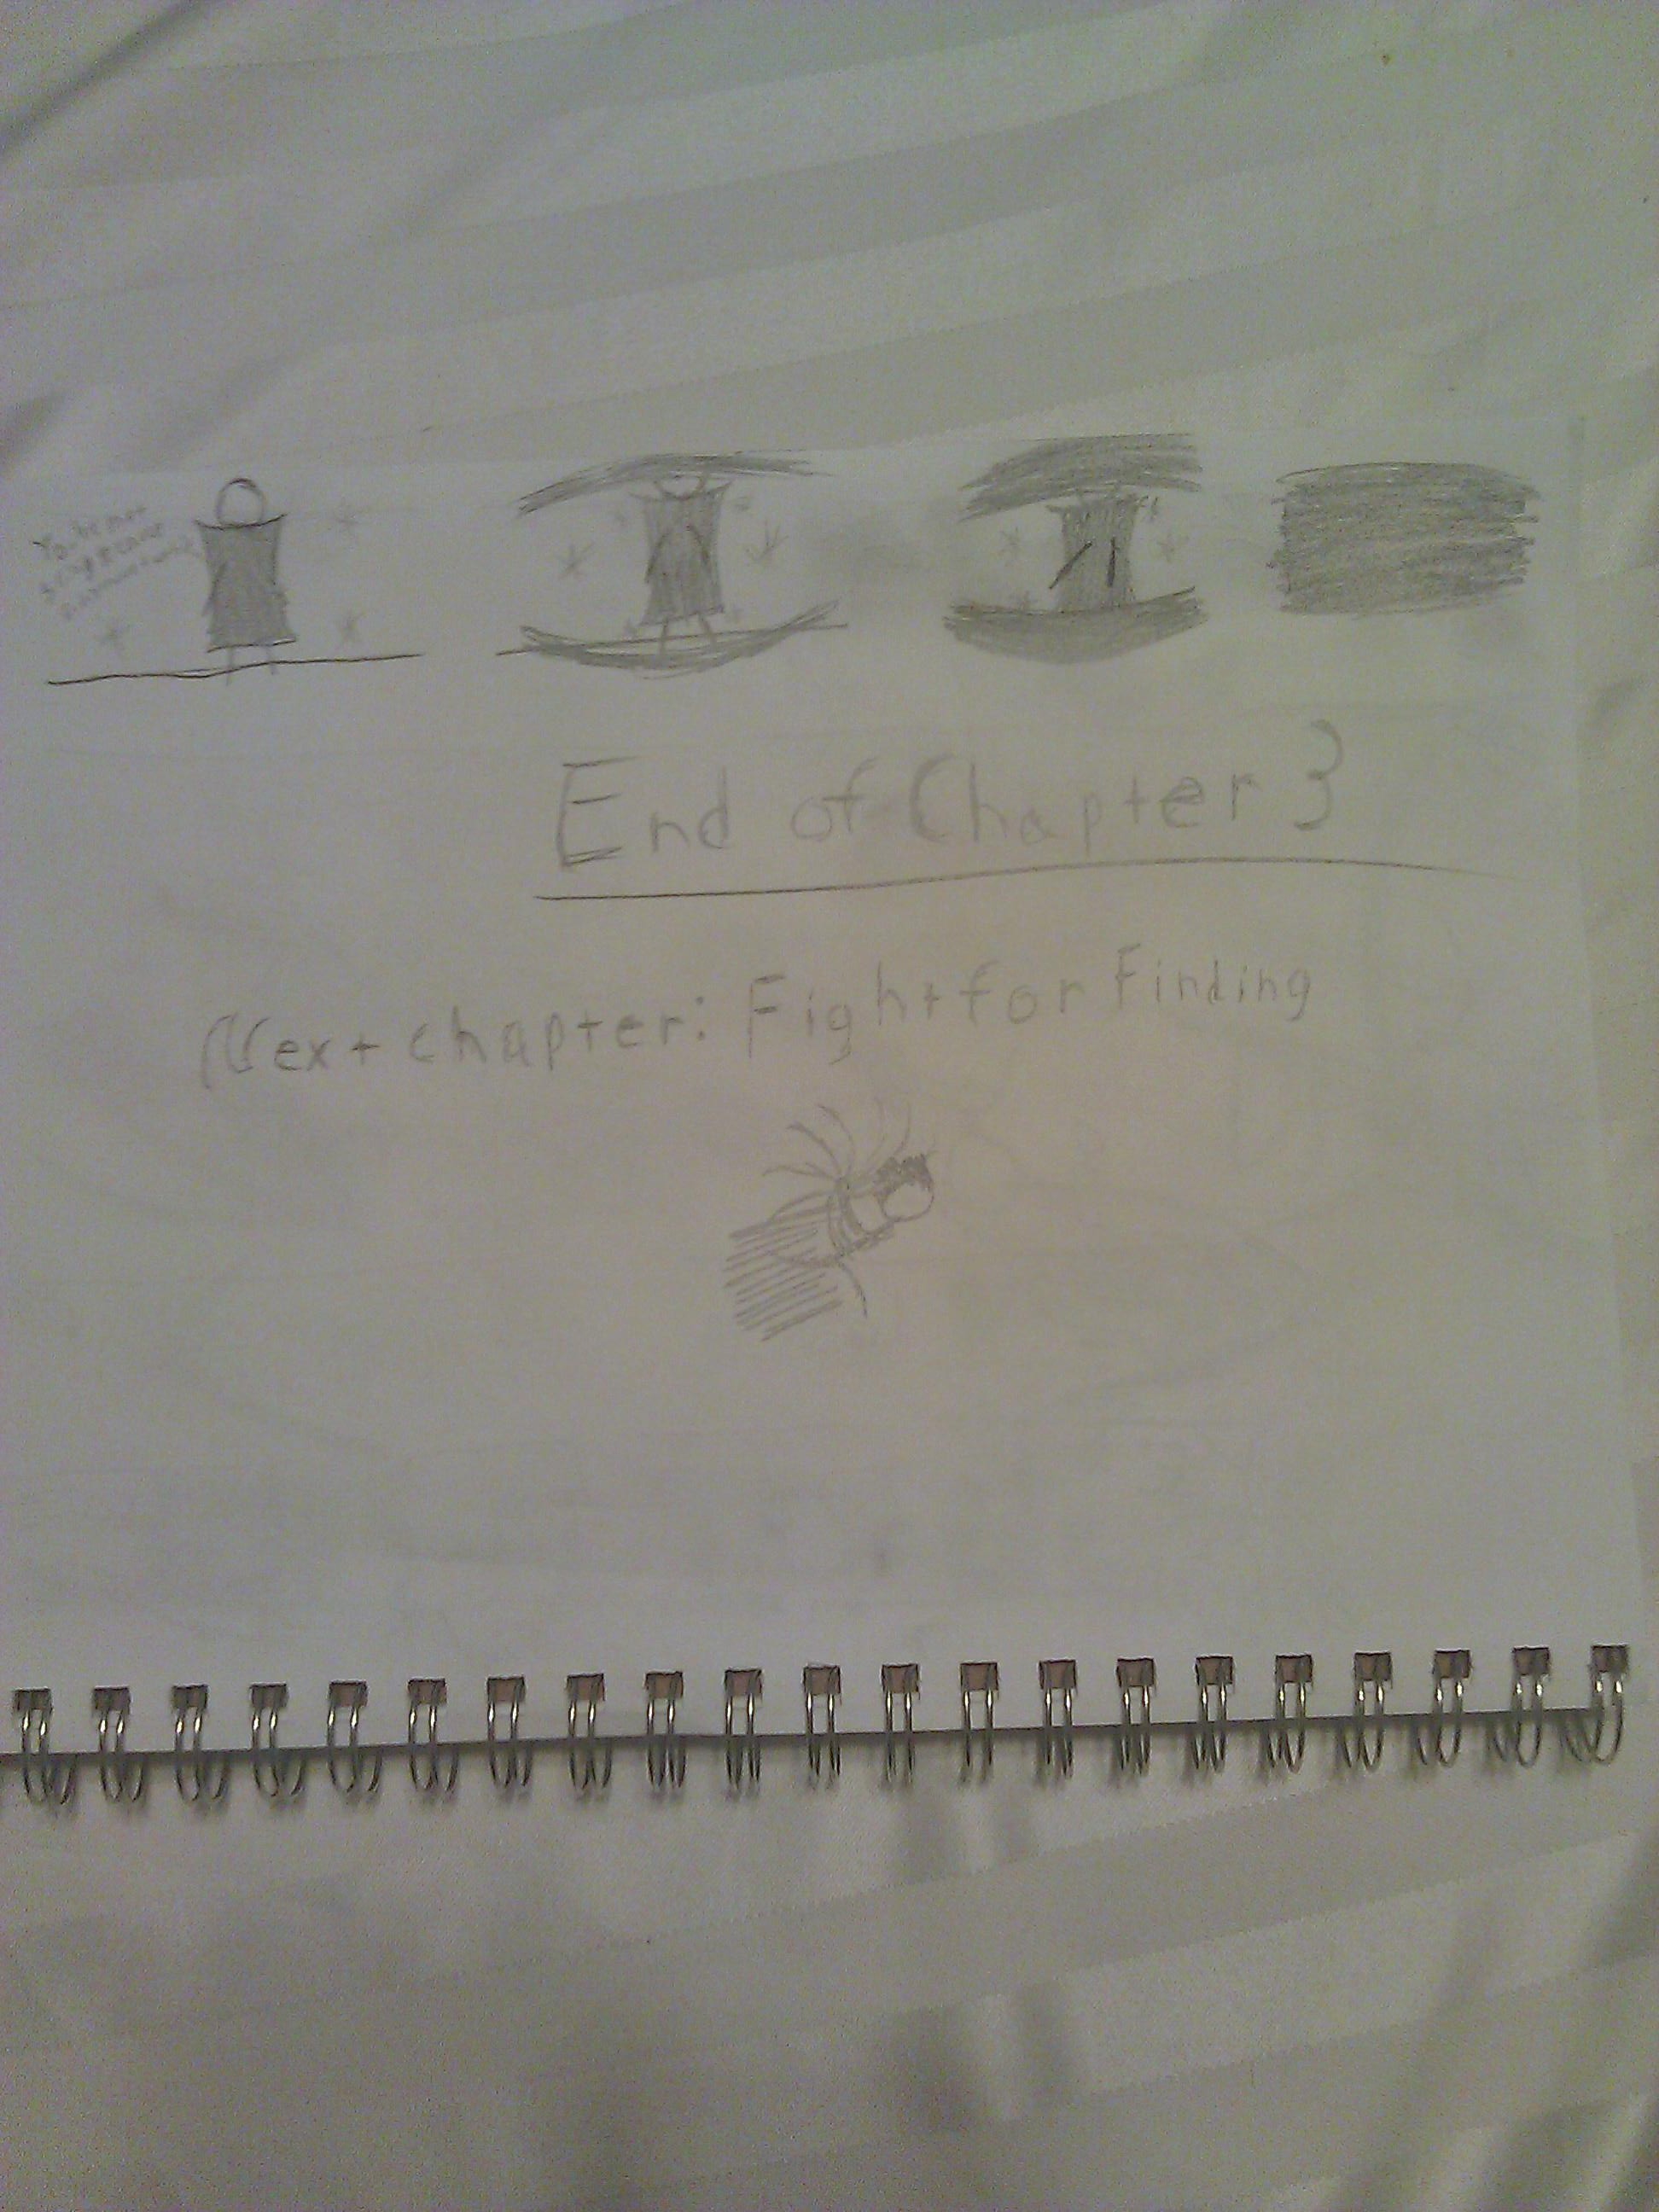 You're not
End of Chapter 3
Next chapter: Fight for Finding